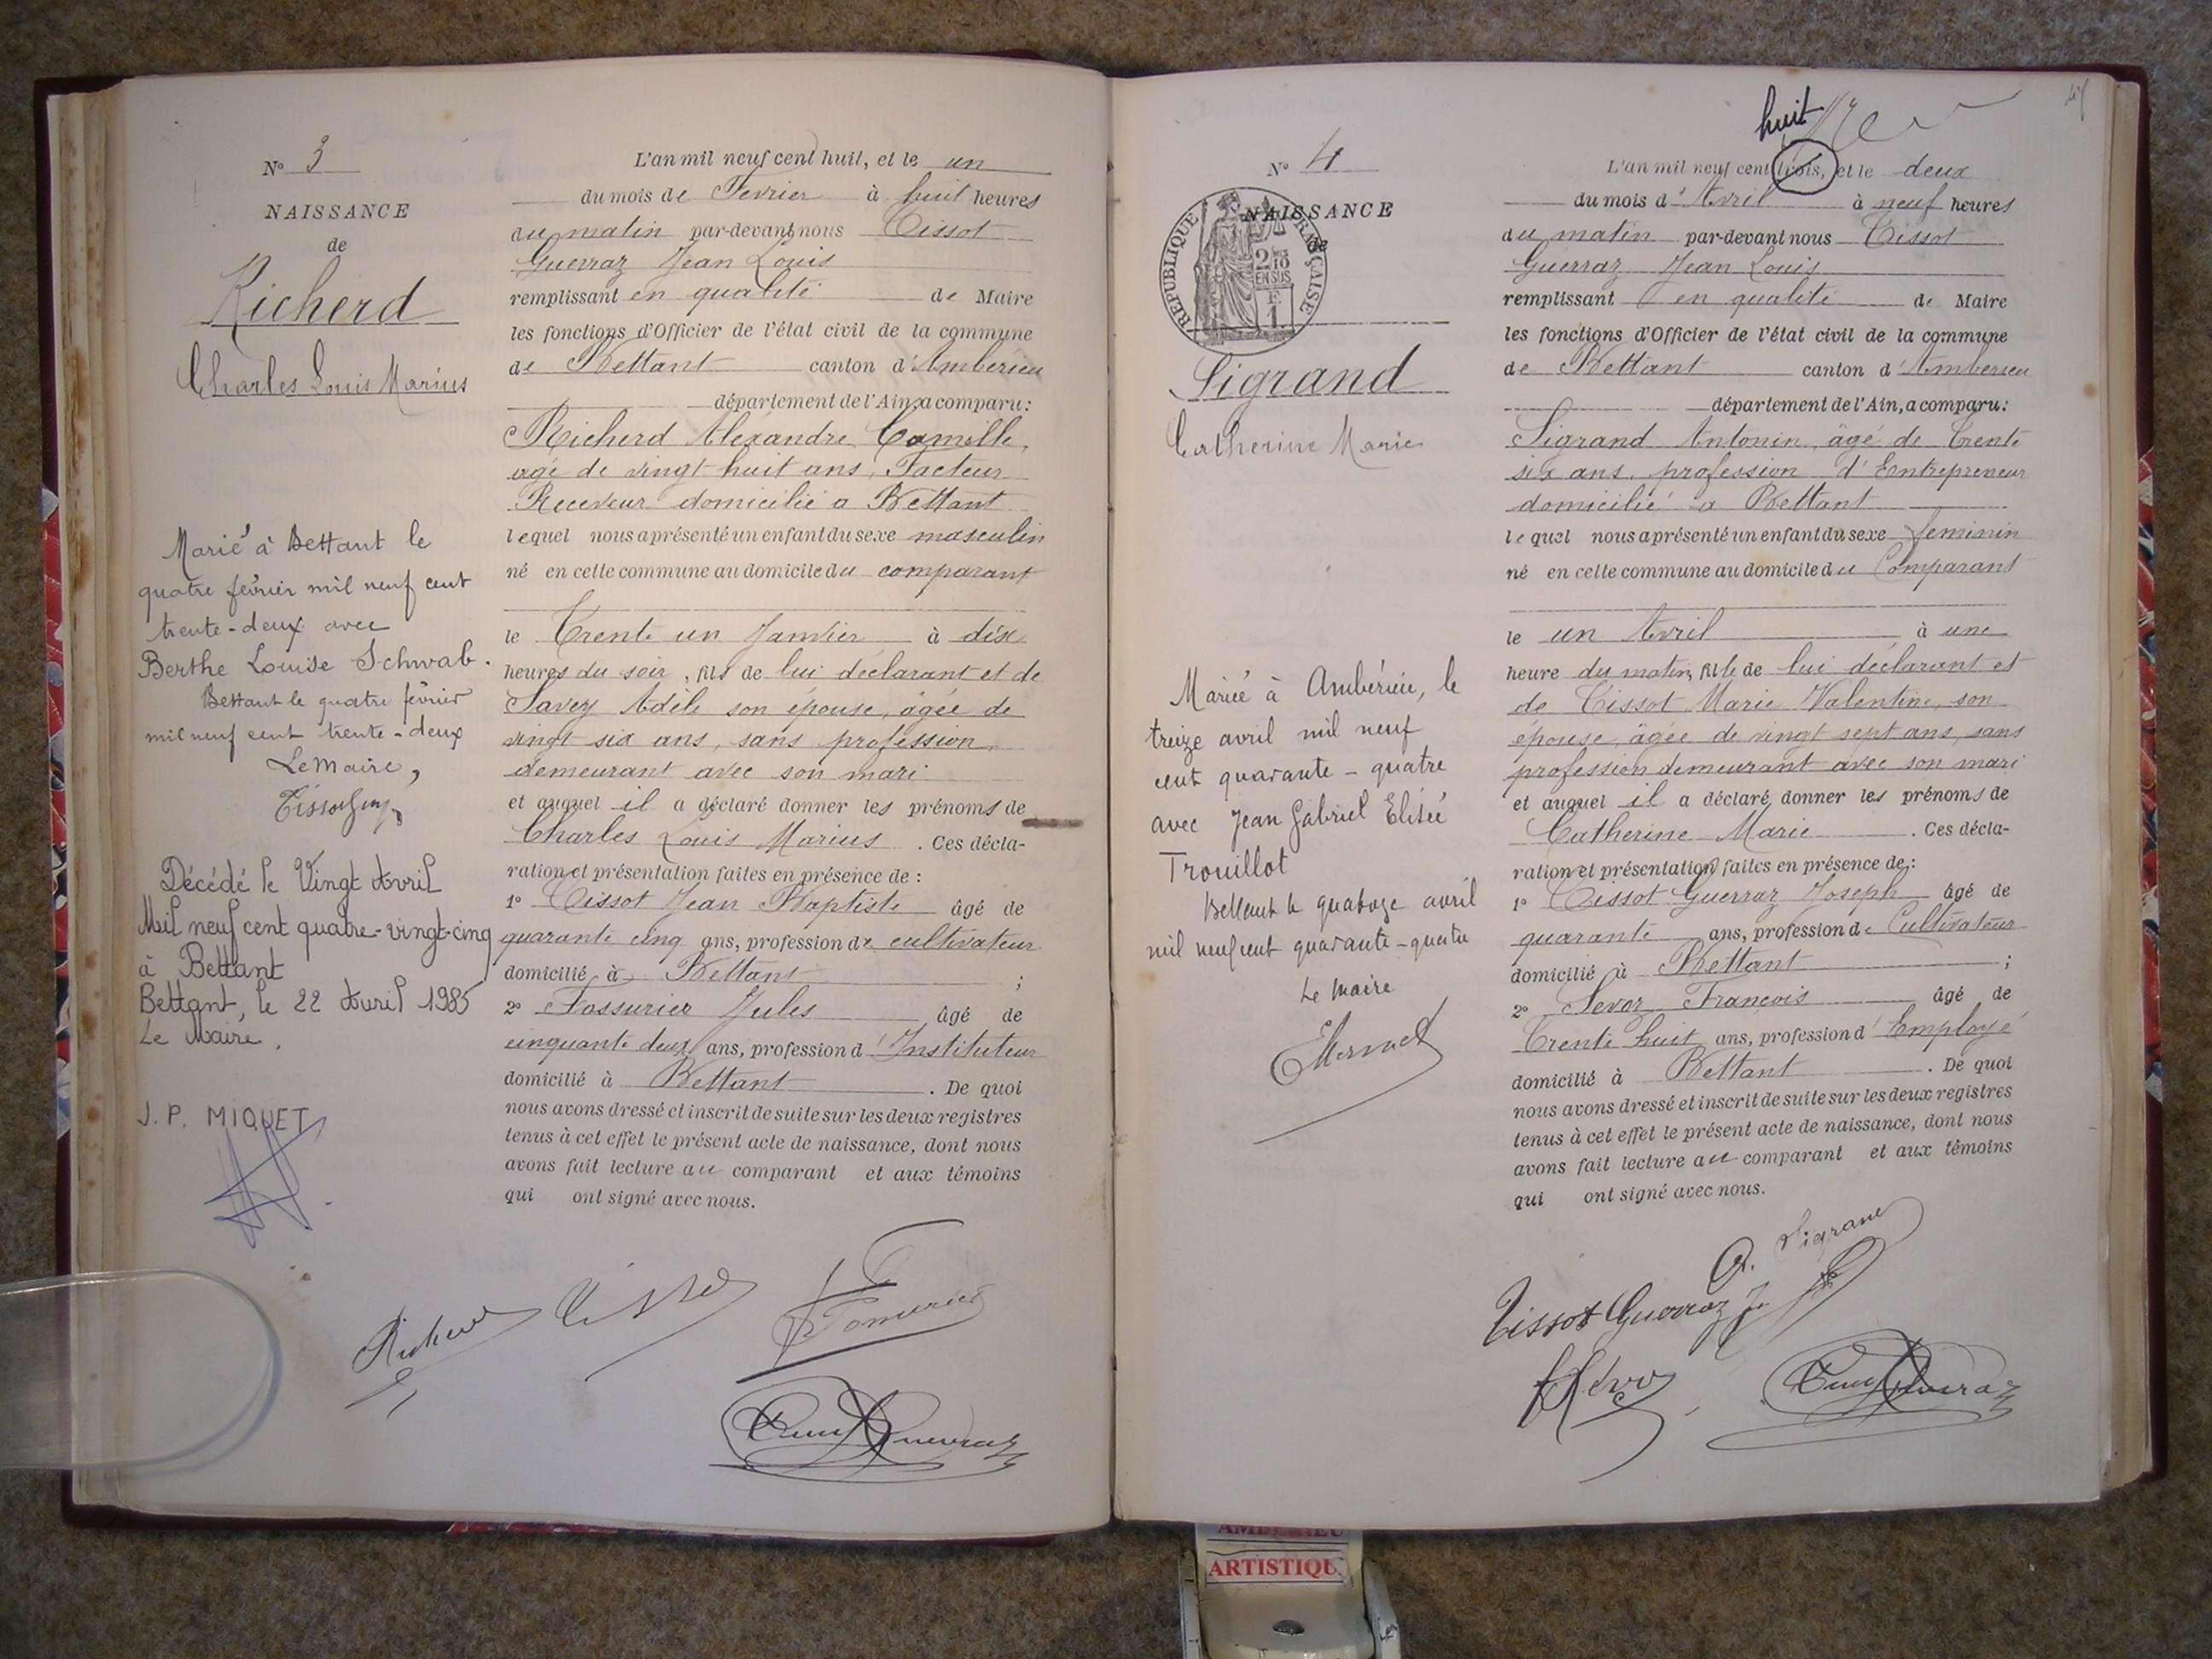 N° 3
NAISSANCE
de
Richerd
Charles Louis Marius
Marié à Bettant le
quatre février mil neuf cent
trente-deux avec
Berthe Louise Schwab.
Bettant le quatre février
mil neuf cent trente-deux
Le Maire,
Décédé le Vingt Avril
Mil neuf cent quatre-vingt-cinq
à Bettant
Bettant, le 22 Avril 1985
Le Maire.
J. P. MIQUET
L'an mil neuf cent huit, et le un
du mois de Fevrier à huit heures
du matin par-devant nous Tissot
Guerraz Jean Louis
remplissant en qualité de Maire
les fonctions d'Officier de l'état civil de la commune
de Bettant canton d'Ambérieu
département de l'Ain, a comparu:
Richerd Alexandre Camille,
agé de vingt huit ans, Facteur
Receveur domicilié a Bettant
lequel nous a présenté un enfant du sexe masculin
né en cette commune au domicile du comparant
le Trente un Janvier à dix
heures du soir, fils de lui déclarant et de
Savey Adèle son épouse, âgée de
vingt six ans, sans profession,
demeurant avec son mari
et auquel il a déclaré donner les prénoms de
Charles Louis Marius. Ces décla-
ration et présentation faites en présence de :
1° Tissot Jean Baptiste âgé de
quarante cinq ans, profession de cultivateur
domicilié à Bettant ;
2° Fossurier Jules âgé de
cinquante deux ans, profession d'Instituteur
domicilié à Bettant. De quoi
nous avons dressé et inscrit de suite sur les deux registres
tenus à cet effet le présent acte de naissance, dont nous
avons fait lecture au comparant et aux témoins
qui ont signé avec nous.
N° 4
NAISSANCE
de
REPUBLIQUE FRANÇAISE
2/10
EN SUS
F
1
Sigrand
Catherine Marie
Mariée à Ambérieu, le
treize avril mil neuf
cent quarante-quatre
avec Jean Gabriel Elisée
Trouillot
Bettant le quatorze avril
mil neuf cent quarante-quatre
Le Maire
huit
L'an mil neuf cent trois, et le deux
du mois d'Avril à neuf heures
du matin par-devant nous Tissot
Guerraz Jean Louis
remplissant en qualité de Maire
les fonctions d'Officier de l'état civil de la commune
de Bettant canton d'Ambérieu
département de l'Ain, a comparu:
Sigrand Antonin, âgé de trente
six ans, profession d'Entrepreneur
domicilié a Bettant
lequel nous a présenté un enfant du sexe feminin
né en cette commune au domicile du Comparant
le un Avril à une
heure du matin, fille de lui déclarant et
de Tissot Marie Valentine, son
épouse, âgée de vingt sept ans, sans
profession demeurant avec son mari
et auquel il a déclaré donner les prénoms de
Catherine Marie. Ces décla-
ration et présentation faites en présence de :
1° Tissot Guerraz Joseph âgé de
quarante ans, profession de Cultivateur
domicilié à Bettant ;
2° François âgé de
Trente huit ans, profession d'Employé
domicilié à Bettant. De quoi
nous avons dressé et inscrit de suite sur les deux registres
tenus à cet effet le présent acte de naissance, dont nous
avons fait lecture au comparant et aux témoins
qui ont signé avec nous.
Tissot Guerraz
ARTISTIQU